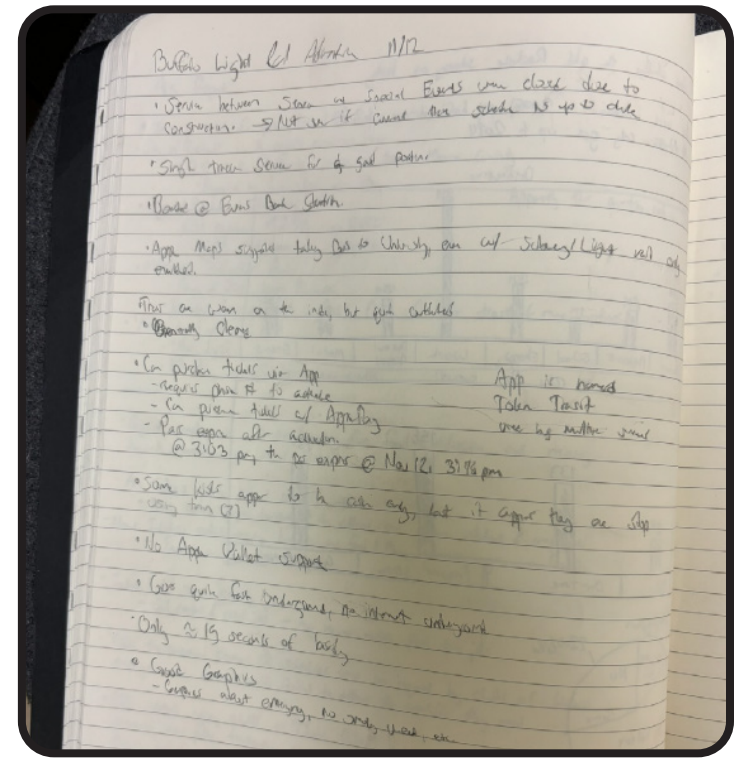 Buffalo Light Rail 11/12
• Service between Seneca and Special Events was closed due to
construction. → Not sure if current time schedule is up to date
• Single track service for a good portion
• Boarded @ Evans Bank Station.
• Apple Maps suggested taking Bus to University, even w/ Subway/Light rail only
enabled.
Trains are worn on the inside, but quite
• Generally clean
• Can purchase tickets via App
- requires phone # to activate
- Can purchase tickets w/ Apple Pay
- Pass expires after activation.
@ 3:03 pm, the expires @ Nov 12,
App is named
Token Transit
used by multiple
• Some kiosks appear to be cash only, but it appears they are
using them (?)
• No Apple Wallet support
• Goes quite fast underground, no internet underground
• Only ≈ 15 seconds of
• Good Graphics
- Graphics about emergency, no etc.